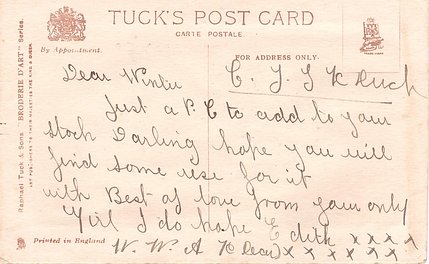 TUCK'S POST CARD
CARTE POSTALE
By Appointment.
FOR ADDRESS ONLY.
Raphael Tuck & Sons "BRODERIE D'ART" Series.
ART PUBLISHERS TO THEIR MAJESTIES THE KING & QUEEN
Dear
Just a P.C to add to your
stock Darling hope you will
find some use for it
with Best of love from your only
I do hope Edith x x x x
W. W. A x x x x x x
Printed in England